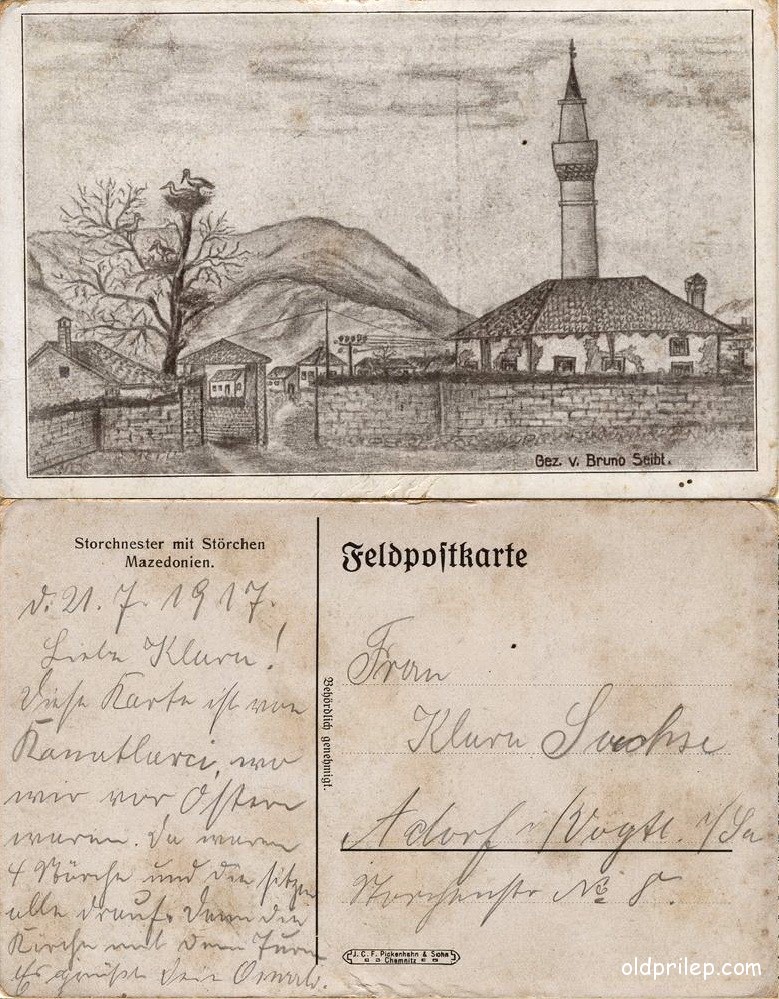 Gez. v. Bruno Seibt.
Storchnester mit Störchen
Mazedonien.
d. 21. 7. 1917.
Liebe Klara!
Diese Karte ist von
Kanatlarci, wo
wir vor Ostern
waren. Da waren
4 Störche und die sitzen
alle drauf. Dann die
Kirche mit dem Turm
Es grüßt Dein Oswald.
Behördlich genehmigt.
Feldpostkarte
Frau
Klara Sachse
Adorf i/Vogtl. i/Sa
Storchenstr No 8.
J. C. F. Pickenhahn & Sohn
Chemnitz
oldprilep.com